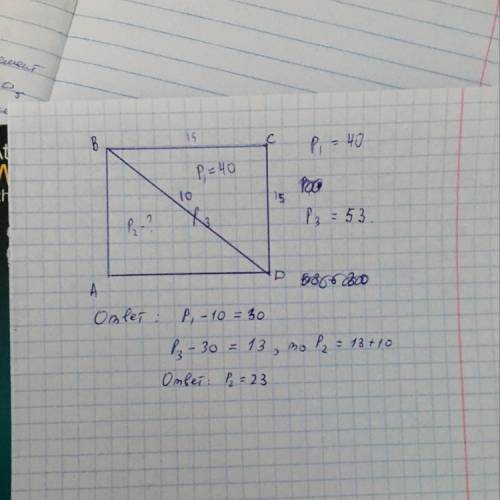 15
B
C
P₁ = 40
P₁ = 40
10
15
P₃
P₃ = 53.
P₂ - ?
A
D
Ответ: P₁ - 10 = 30
P₃ - 30 = 13, то P₂ = 13 + 10
Ответ: P₂ = 23